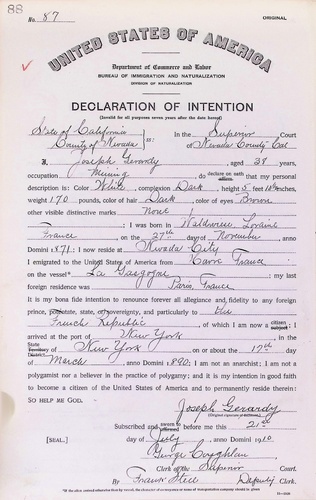 88
No. 87
ORIGINAL
UNITED STATES OF AMERICA
Department of Commerce and Labor
BUREAU OF IMMIGRATION AND NATURALIZATION
DIVISION OF NATURALIZATION
DECLARATION OF INTENTION
(Invalid for all purposes seven years after the date hereof)
State of California
County of Nevada ss:
In the Superior Court
of Nevada County Cal
I, Joseph Gerardy, aged 38 years,
occupation Mining, do declare on oath affirm that my personal
description is: Color White, complexion Dark, height 5 feet inches,
weight 170 pounds, color of hair Dark, color of eyes Brown
other visible distinctive marks None
; I was born in Loraine
France, on the 27th day of November, anno
Domini 1871; I now reside at Nevada City
I emigrated to the United States of America from Havre France
on the vessel* La Gasgogne; my last
foreign residence was Paris, France
It is my bona fide intention to renounce forever all allegiance and fidelity to any foreign
prince, potentate, state, or sovereignty, and particularly to the
French Republic, of which I am now a citizen subject; I
arrived at the port of New York, in the
State Territory District of New York on or about the 17th day
of March, anno Domini 1890; I am not an anarchist; I am not a
polygamist nor a believer in the practice of polygamy; and it is my intention in good faith
to become a citizen of the United States of America and to permanently reside therein:
SO HELP ME GOD.
Joseph Gerardy
(Original signature of declarant)
Subscribed and sworn to affirmed before me this 21st
[SEAL.] day of July, anno Domini 1910
George Coughlan
Clerk of the Superior Court.
By Frank Steel Deputy Clerk.